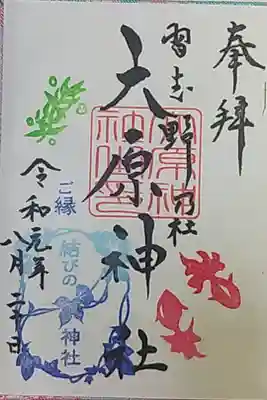 奉拝
習志野乃社
大原神社
ご縁
結びの
神社
令和元年
八月二十日